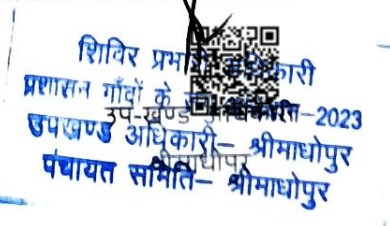 शिविर प्रभारी अधिकारी
प्रशासन गाँवों के संग अभियान–2023
उप-खण्ड अधिकारी
उपखण्ड अधिकारी– श्रीमाधोपुर
श्रीमाधोपुर
पंचायत समिति– श्रीमाधोपुर